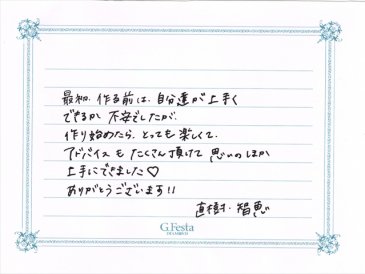 最初、作る前は、自分達が上手く
できるか不安でしたが、
作り始めたら、とっても楽しくて、
アドバイスもたくさん頂けて思いのほか
上手にできました♡
ありがとうございます!!
直樹・智恵
G.Festa